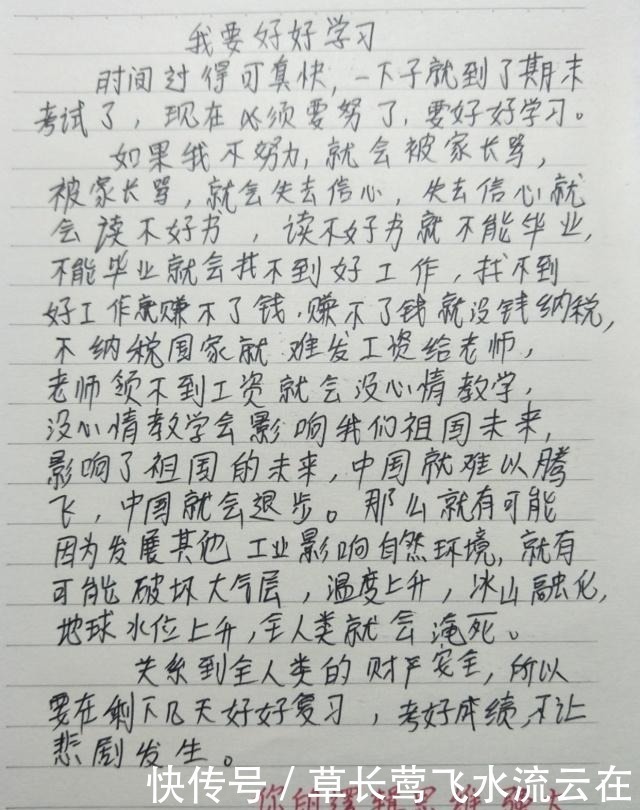 我要好好学习
时间过得可真快,一下子就到了期末
考试了,现在必须要努了,要好好学习。
如果我不努力,就会被家长骂,
被家长骂,就会失去信心,失去信心就
会读不好书,读不好书就不能毕业,
不能毕业就会找不到好工作,找不到
好工作就赚不了钱.赚不了钱就没钱纳税,
不纳税国家就难发工资给老师,
老师领不到工资就会没心情教学,
没心情教学会影响我们祖国未来,
影响了祖国的未来,中国就难以腾
飞,中国就会退步。那么就有可能
因为发展其他工业影响自然环境,就有
可能破坏大气层,温度上升,冰山融化,
地球水位上升,全人类就会淹死。
关系到全人类的财产安全,所以
要在剩下几天好好复习,考好成绩,不让
悲剧发生。
快传号/草长莺飞水流云在
你的逻辑思维强大